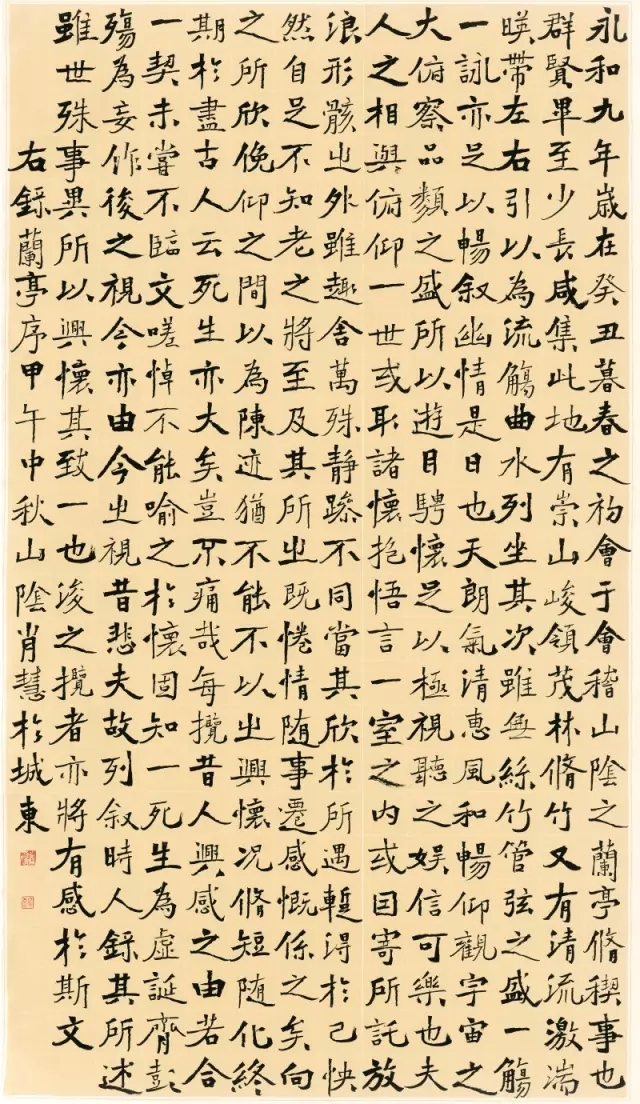 永和九年歲在癸丑暮春之初會于會稽山陰之蘭亭脩稧事也
群賢畢至少長咸集此地有崇山峻領茂林脩竹又有清流激湍
暎帶左右引以為流觴曲水列坐其次雖無絲竹管弦之盛一觴
一詠亦足以暢叙幽情是日也天朗氣清惠風和暢仰觀宇宙之
大俯察品類之盛所以遊目騁懷足以極視聽之娛信可樂也夫
人之相與俯仰一世或取諸懷抱悟言一室之内或因寄所託放
浪形骸之外雖趣舍萬殊靜躁不同當其欣於所遇蹔得於己快
然自足不知老之將至及其所之既惓情随事遷感慨係之矣向
之所欣俛仰之間以為陳迹猶不能不以之興懷況脩短随化終
期於盡古人云死生亦大矣豈不痛哉每攬昔人興感之由若合
一契未嘗不臨文嗟悼不能喻之於懷固知一死生為虛誕齊彭
殤為妄作後之視今亦由今之視昔悲夫故列叙時人錄其所述
雖世殊事異所以興懷其致一也後之攬者亦將有感於斯文
右錄蘭亭序甲午中秋山陰肖慧於城東